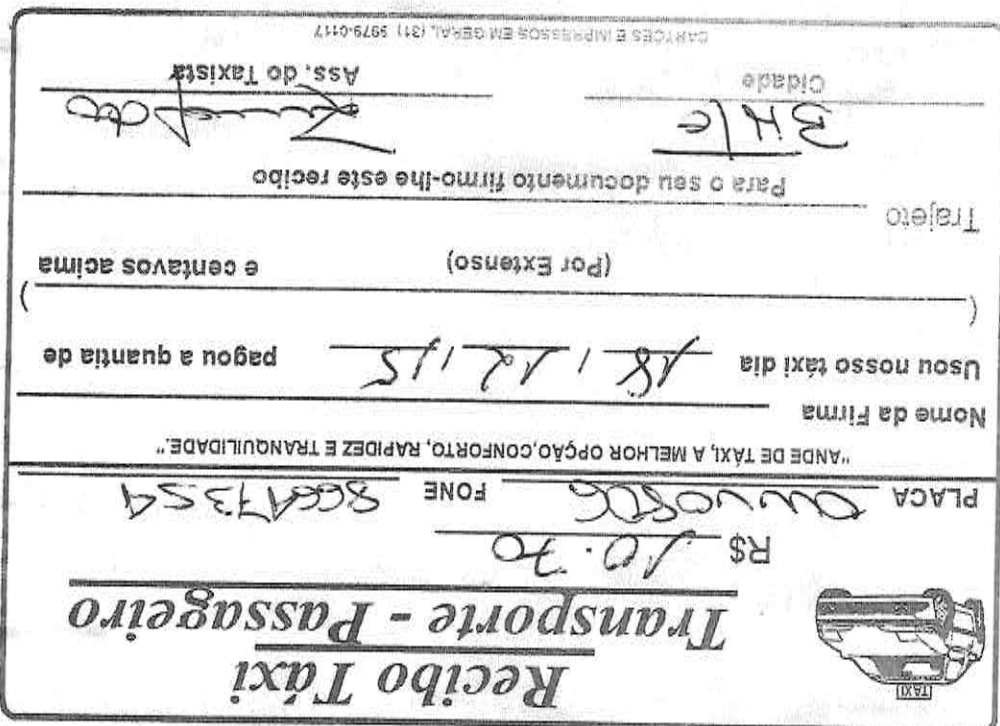 TAXI
Recibo Táxi
Transporte - Passageiro
R$ 10.70
PLACA FONE
"ANDE DE TÁXI, A MELHOR OPÇÃO,CONFORTO, RAPIDEZ E TRANQUILIDADE."
Nome da Firma
Usou nosso táxi dia 18 / 12 / 15 pagou a quantia de
( )
(Por Extenso) e centavos acima
Trajeto
Para o seu documento firmo-lhe este recibo
BH/e
Cidade Ass. do Taxista
CARTÕES E IMPRESSOS EM GERAL (31) 9979-0117